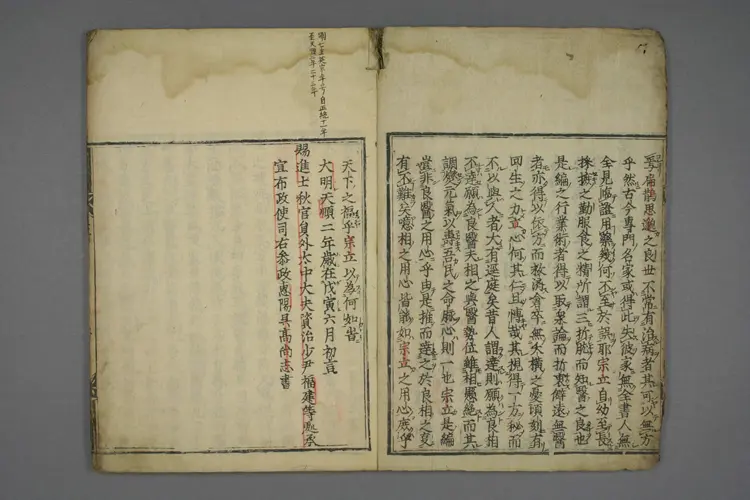 乎扁鵲思邈之良世不常有泡病者其可以無方
乎然古今專門名家或得此失彼家無全書人無
全見臨證用藥幾何不至於誤耶宗立自幼至長
捃摭之勤服食之精所謂三折肱而知醫之良也
是編之行業術者得以取某論而折衷僻遠無醫
者亦得以依方而救濟倉卒無夭橫之憂頃刻有
回生之力立心何其仁且博哉其視得一方秘而
不以與人者大有逕庭矣昔人謂達則願為良相
不達願為良醫夫相之與醫勢位雖相懸絕而其
調燮元氣以壽吾民之命脉心則一也宗立是編
豈非良醫之用心乎由是推而達之於良相之変
有不難矣噫相之用心皆能如宗立之用心底乎
天下之福乎宗立以為何如書
大明天順二年歲在戊寅六月初吉
賜進士秋官員外太中大夫資治少尹福建等處承
宣布政使司右參政惠陽具高尚志書